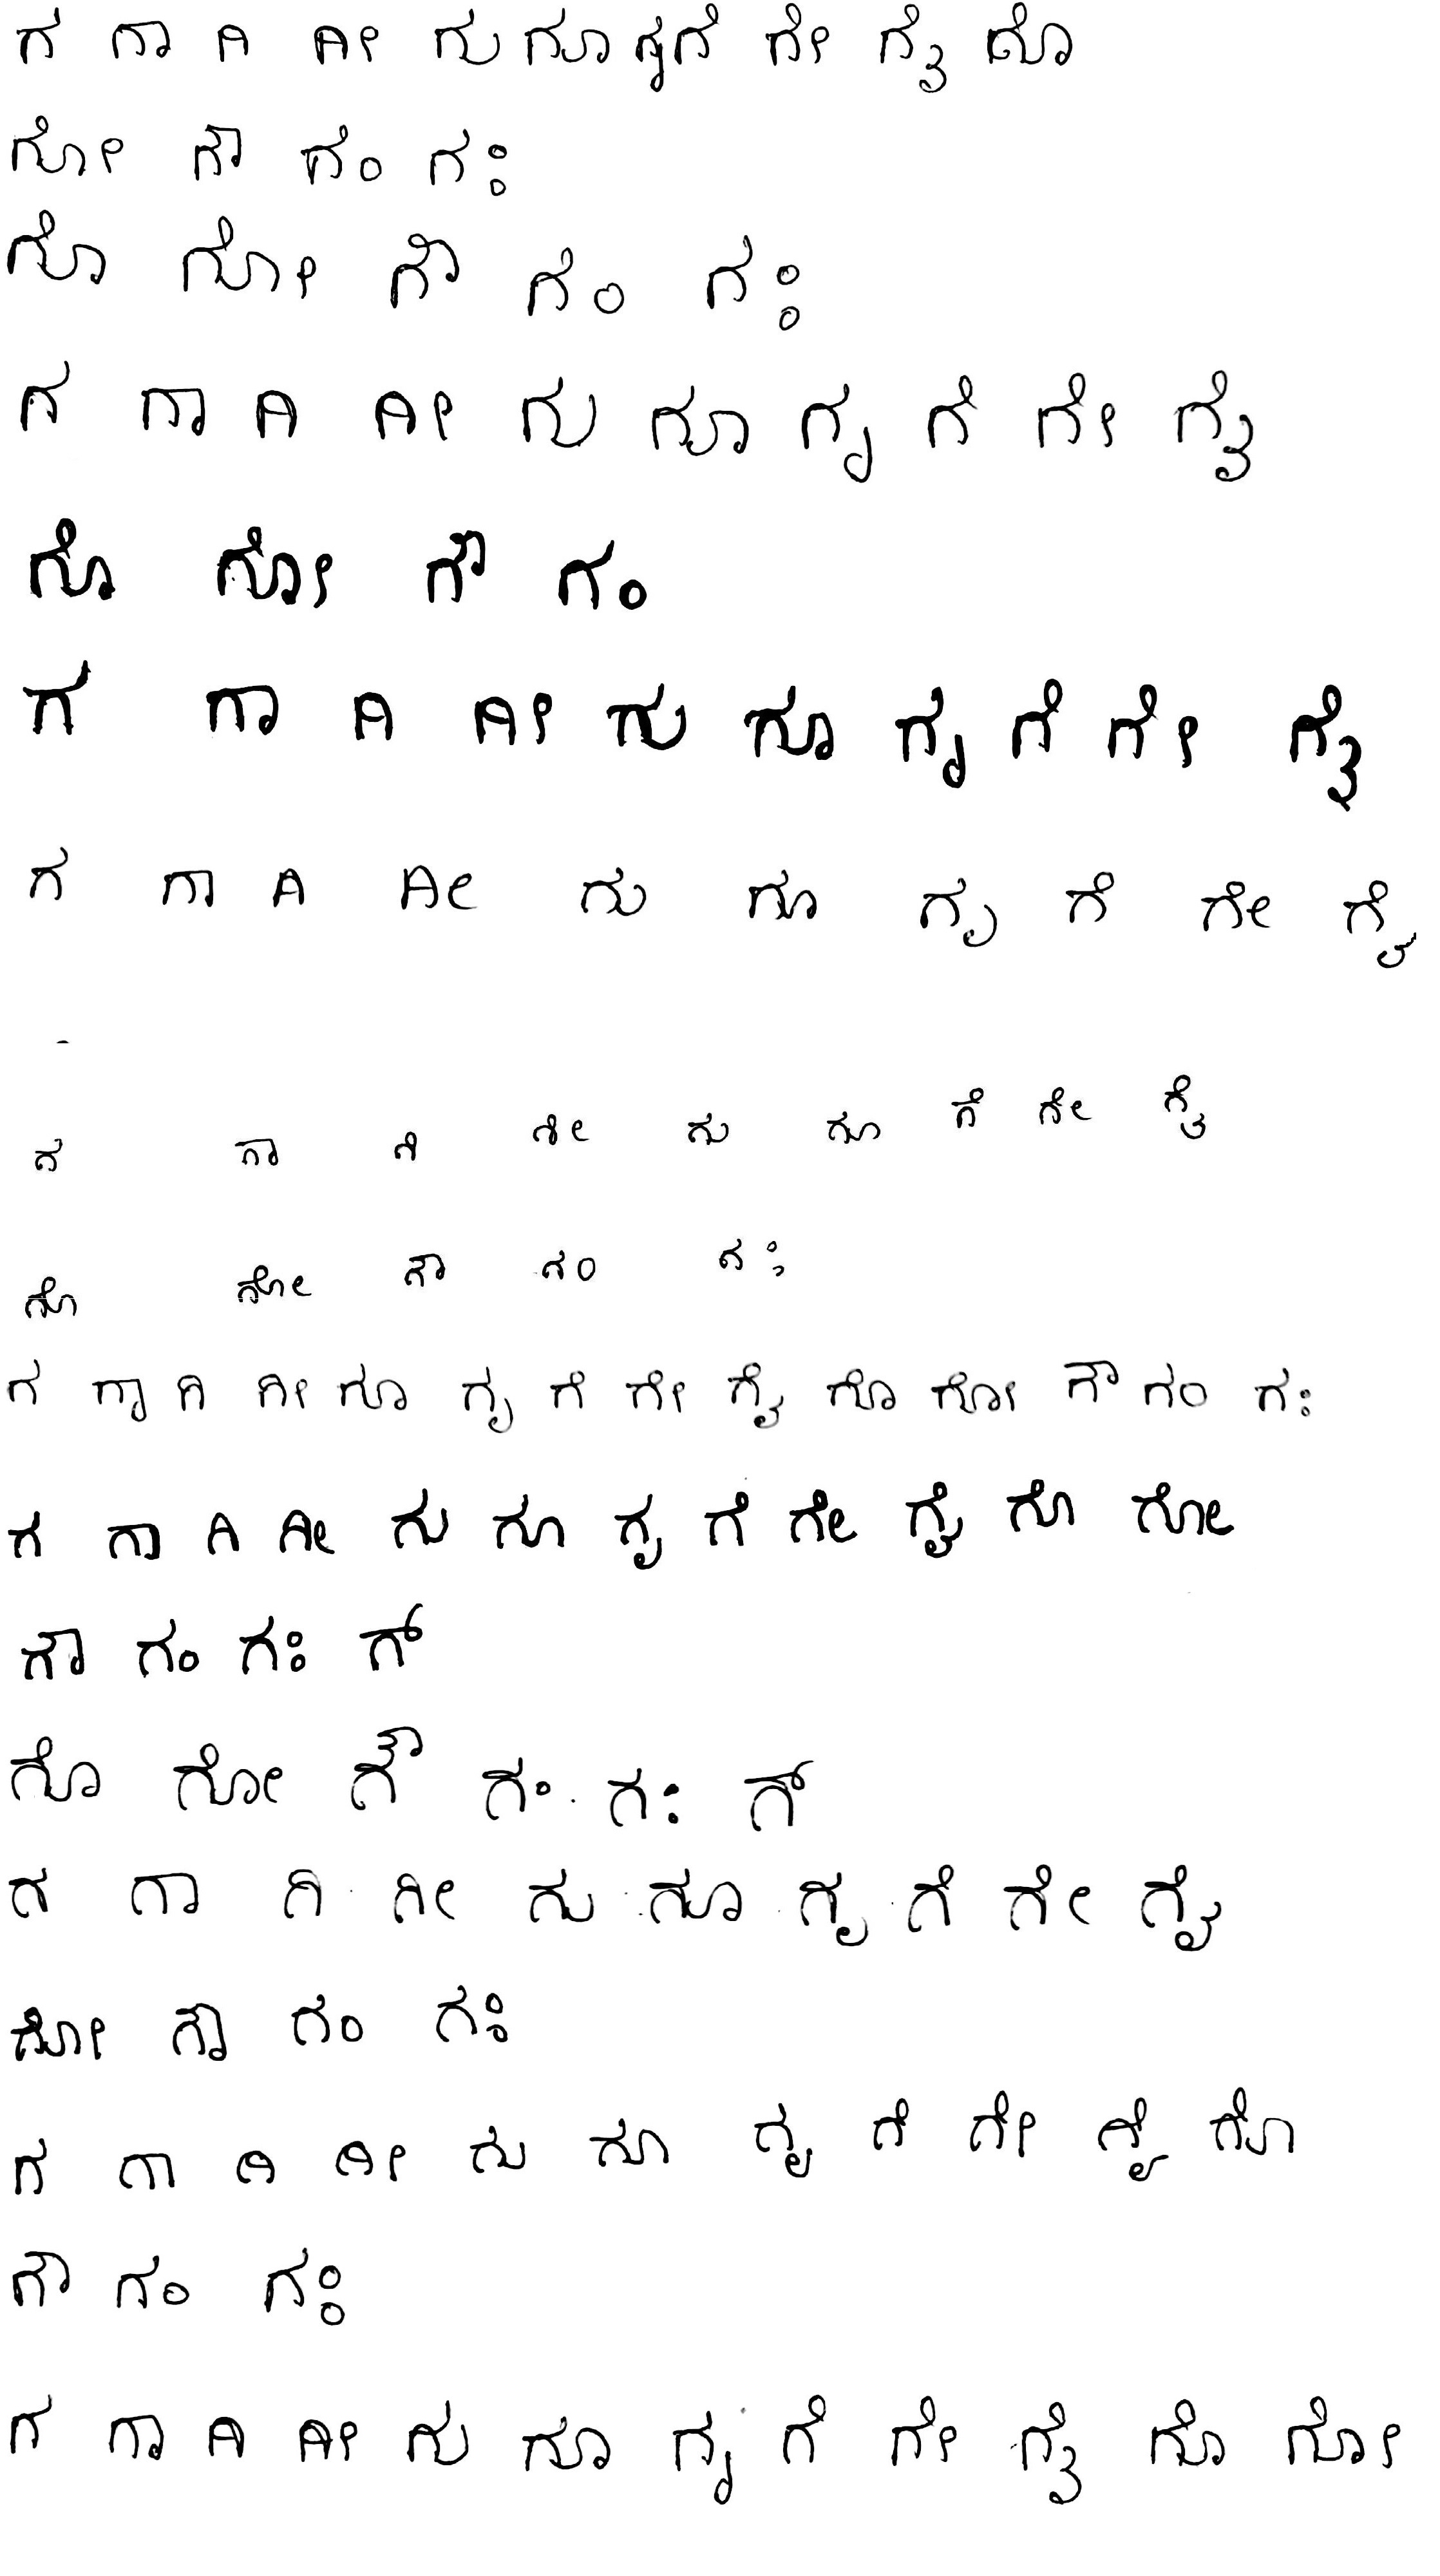 ಗ ಗಾ ಗಿ ಗೀ ಗು ಗೂ ಗೃ ಗೆ ಗೇ ಗೈ ಗೊ
ಗೋ ಗೌ ಗಂ ಗಃ
ಗೊ ಗೋ ಗೌ ಗಂ ಗಃ
ಗ ಗಾ ಗಿ ಗೀ ಗು ಗೂ ಗೃ ಗೆ ಗೇ ಗೈ
ಗೊ ಗೋ ಗೌ ಗಂ
ಗ ಗಾ ಗಿ ಗೀ ಗು ಗೂ ಗೃ ಗೆ ಗೇ ಗೈ
ಗ ಗಾ ಗಿ ಗೀ ಗು ಗೂ ಗೃ ಗೆ ಗೇ ಗೈ
ಗ ಗಾ ಗಿ ಗೀ ಗು ಗೂ ಗೆ ಗೇ ಗೈ
ಗೊ ಗೋ ಗೌ ಗಂ ಗಃ
ಗ ಗಾ ಗಿ ಗೀ ಗೂ ಗೃ ಗೆ ಗೇ ಗೈ ಗೊ ಗೋ ಗೌ ಗಂ ಗಃ
ಗ ಗಾ ಗಿ ಗೀ ಗು ಗೂ ಗೃ ಗೆ ಗೇ ಗೈ ಗೊ ಗೋ
ಗೌ ಗಂ ಗಃ ಗ್
ಗೊ ಗೋ ಗೌ ಗಂ ಗಃ ಗ್
ಗ ಗಾ ಗಿ ಗೀ ಗು ಗೂ ಗೃ ಗೆ ಗೇ ಗೈ
ಗೋ ಗೌ ಗಂ ಗಃ
ಗ ಗಾ ಗಿ ಗೀ ಗು ಗೂ ಗೃ ಗೆ ಗೇ ಗೈ ಗೊ
ಗೌ ಗಂ ಗಃ
ಗ ಗಾ ಗಿ ಗೀ ಗು ಗೂ ಗೃ ಗೆ ಗೇ ಗೈ ಗೊ ಗೋ